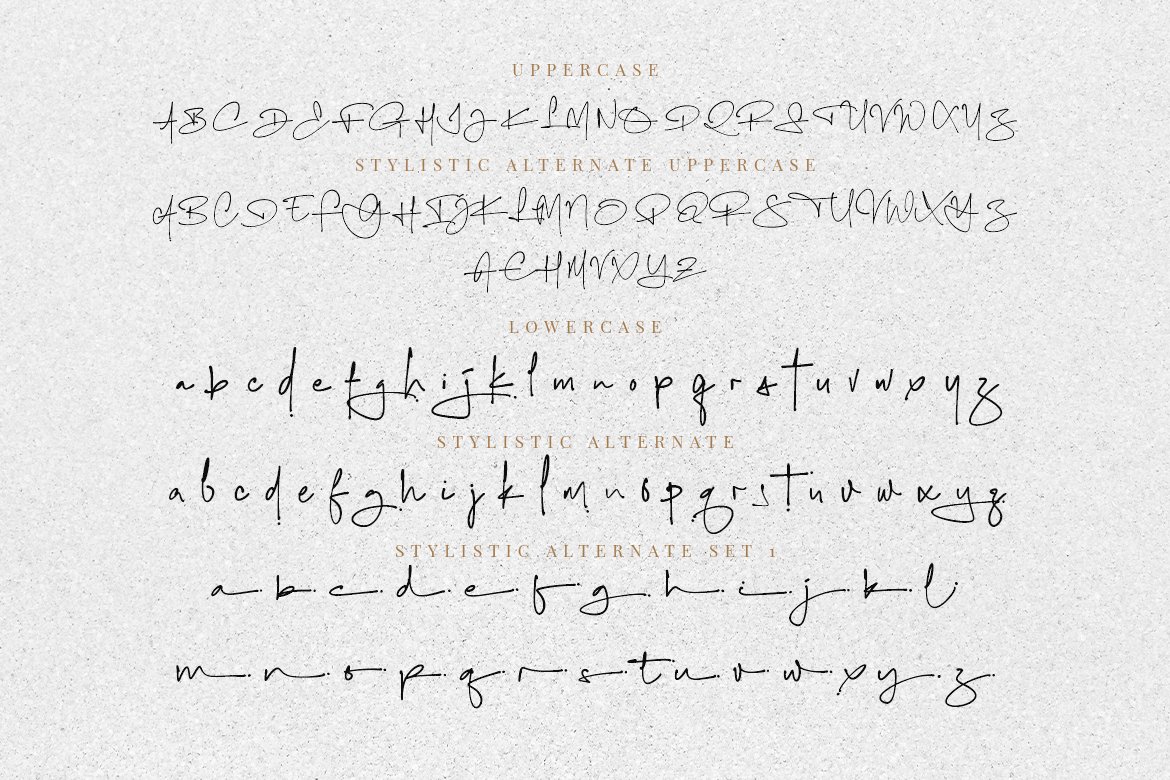 UPPERCASE
A B C D E F G H I J K L M N O P Q R S T U V W X Y Z
STYLISTIC ALTERNATE UPPERCASE
A B C D E F G H I J K L M N O P Q R S T U V W X Y Z
A E H M V X Y Z
LOWERCASE
a b c d e f g h i j k l m n o p q r s t u v w x y z
STYLISTIC ALTERNATE
a b c d e f g h i j k l m n o p q r s t u v w x y z
STYLISTIC ALTERNATE SET 1
a b c d e f g h i j k l
m n o p q r s t u v w x y z